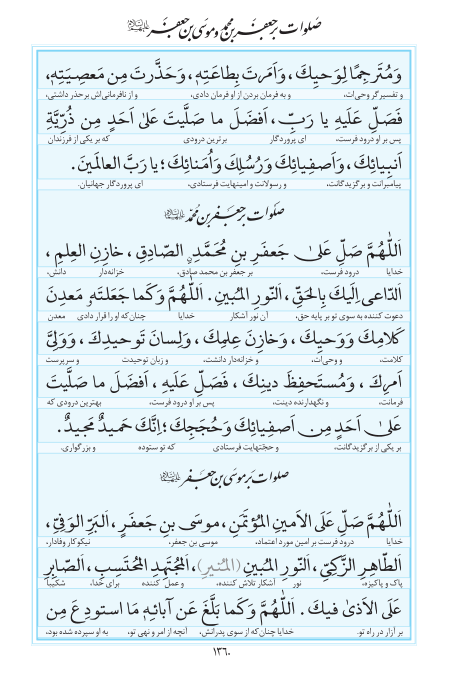 صلوات بر جعفر بن محمد و موسی بن جعفر علیهماالسلام
وَمُتَرجِمًا لِوَحيِكَ، وَاَمَرتَ بِطاعَتِهٖ، وَحَذَّرتَ مِن مَعصِيَتِهٖ،
و تفسیرگر وحی‌ات، و به فرمان بردن از او فرمان دادی، و از نافرمانی‌اش برحذر داشتی،
فَصَلِّ عَلَيهِ يا رَبِّ، اَفضَلَ ما صَلَّيتَ عَلىٰ اَحَدٍ مِن ذُرِّيَّةِ
پس بر او درود فرست، ای پروردگار برترین درودی که بر یکی از فرزندان
اَنبِيائِكَ، وَاَصفِيائِكَ وَرُسُلِكَ وَاُمَنائِكَ؛ يا رَبَّ العالَمينَ.
پیامبرانت و برگزیدگانت، و رسولانت و امینهایت فرستادی، ای پروردگار جهانیان.
صلوات بر جعفر بن محمّد علیهماالسلام
اَللّٰهُمَّ صَلِّ عَلىٰ جَعفَرِ بنِ مُحَمَّدٍ الصّادِقِ، خازِنِ العِلمِ،
خدایا درود فرست، بر جعفر بن محمد صادق، خزانه‌دار دانش،
اَلدّاعى اِلَيكَ بِالحَقِّ، اَلنّورِ المُبينِ. اَللّٰهُمَّ وَكَما جَعَلتَهٗ مَعدِنَ
دعوت کننده به سوی تو بر پایه حق، آن نور آشکار خدایا چنان‌که او را قرار دادی معدن
كَلامِكَ وَوَحيِكَ، وَخازِنَ عِلمِكَ، وَلِسانَ تَوحيدِكَ، وَوَلِىَّ
کلامت، و وحی‌ات، و خزانه‌دار دانشت، و زبان توحیدت و سرپرست
اَمرِكَ، وَمُستَحفِظَ دينِكَ، فَصَلِّ عَلَيهِ، اَفضَلَ ما صَلَّيتَ
فرمانت، و نگهدارنده دینت، پس بر او درود فرست، بهترین درودی که
عَلىٰ اَحَدٍ مِن اَصفِيائِكَ وَحُجَجِكَ؛ اِنَّكَ حَميدٌ مَجيدٌ.
بر یکی از برگزیدگانت، و حجتهایت فرستادی که تو ستوده و بزرگواری.
صلوات بر موسی بن جعفر علیهماالسلام
اَللّٰهُمَّ صَلِّ عَلَى الاَمينِ المُؤتَمَنِ، موسَى بنِ جَعفَرٍ، اَلبَرِّ الوَفِىِّ،
خدایا درود فرست بر امین مورد اعتماد، موسی بن جعفر، نیکوکار وفادار،
اَلطّاهِرِ الزَّكِىِّ، اَلنّورِ المُبينِ (المُنيرِ)، اَلمُجتَهِدِ المُحتَسِبِ، اَلصّابِرِ
پاک و پاکیزه، نور آشکار تلاش کننده، و عمل کننده برای خدا، شکیبا
عَلَى الاَذىٰ فيكَ. اَللّٰهُمَّ وَكَما بَلَّغَ عَن آبائِهٖ مَا استودِعَ مِن
بر آزار در راه تو. خدایا چنان‌که از سوی پدرانش، آنچه از امر و نهی تو، به او سپرده شده بود،
۱۳۶۰